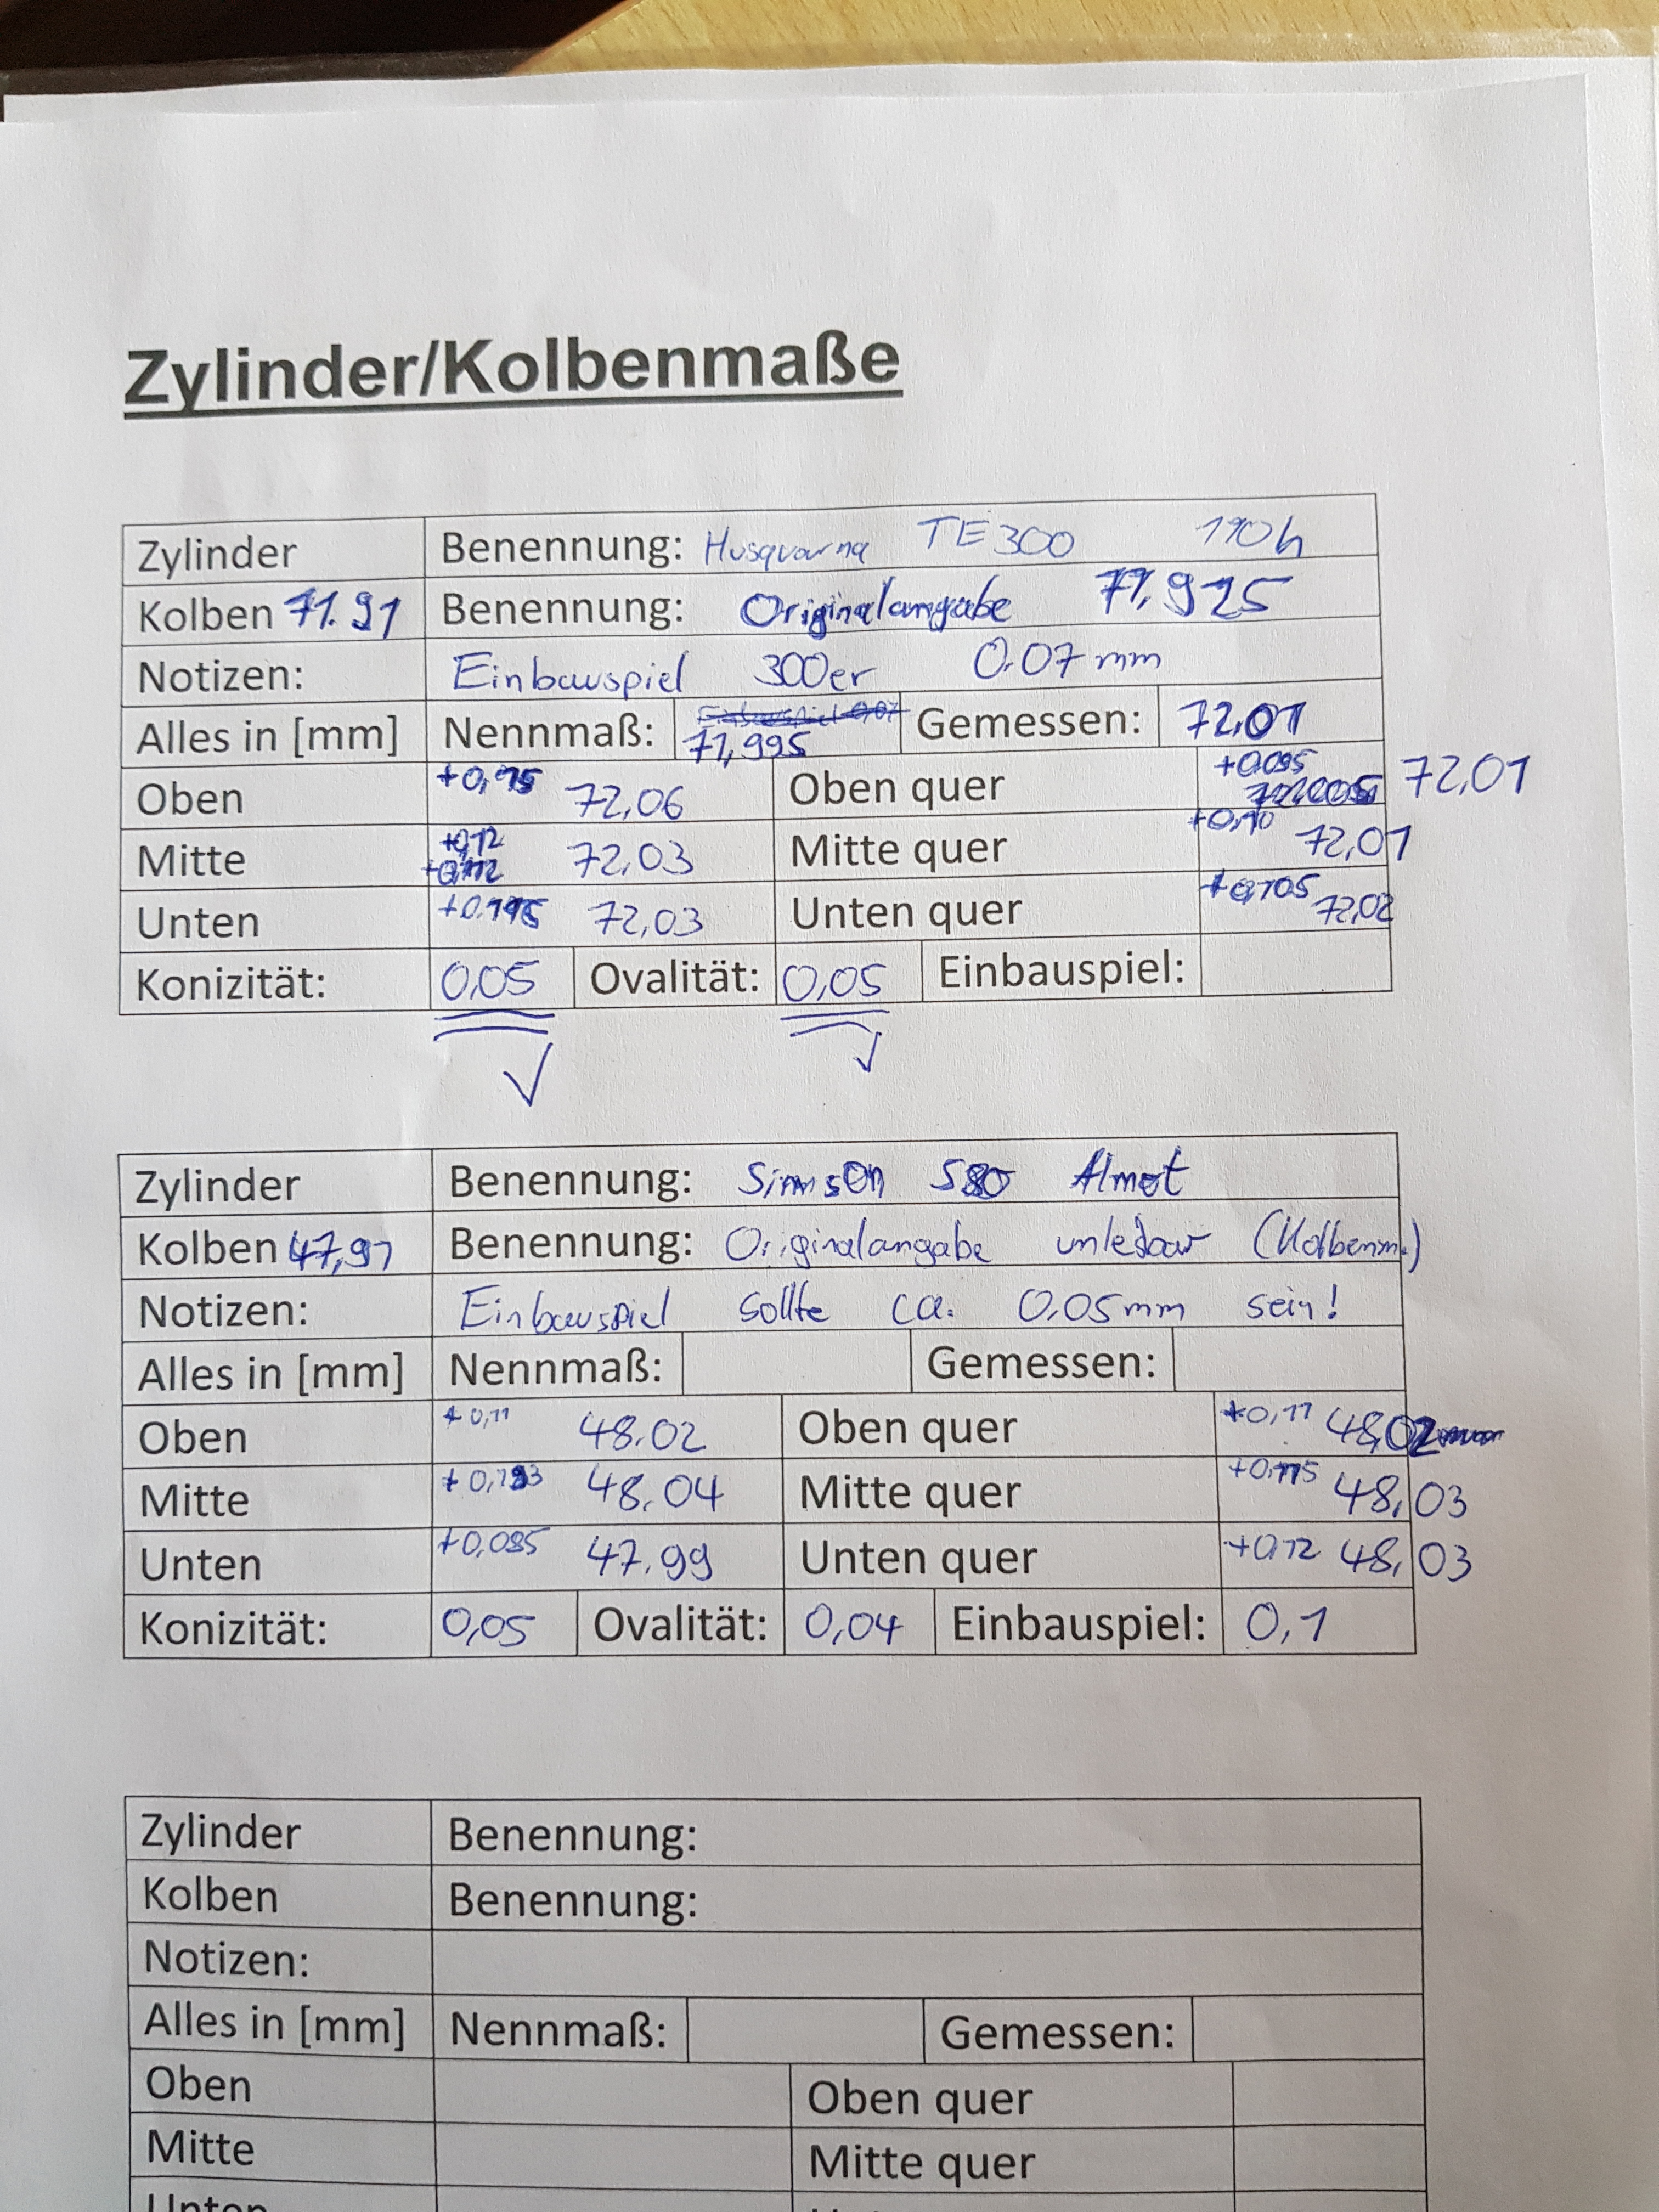 Zylinder/Kolbenmaße
Zylinder Benennung: Husqvarna TE 300 190h
Kolben 71.91 Benennung: Originalangabe 71,925
Notizen: Einbauspiel 300er 0.07 mm
Alles in [mm] Nennmaß: 71,995 Gemessen: 72,01
Oben 72,06 Oben quer +0.095 72,01
Mitte +0,12 72,03 Mitte quer +0,10 72,01
Unten 72,03 Unten quer +0,105 72,02
Konizität: 0,05 Ovalität: 0,05 Einbauspiel:
Zylinder Benennung: Simson S80 Almot
Kolben 47,91 Benennung: Originalangabe unlesbar (Kolbenm.)
Notizen: Einbauspiel sollte ca. 0,05mm sein!
Alles in [mm] Nennmaß: Gemessen:
Oben +0,11 48.02 Oben quer +0,11 48,02
Mitte 48.04 Mitte quer +0,115 48,03
Unten +0,085 47.99 Unten quer +0,12 48,03
Konizität: 0,05 Ovalität: 0,04 Einbauspiel: 0,1
Zylinder Benennung:
Kolben Benennung:
Notizen:
Alles in [mm] Nennmaß: Gemessen:
Oben Oben quer
Mitte Mitte quer